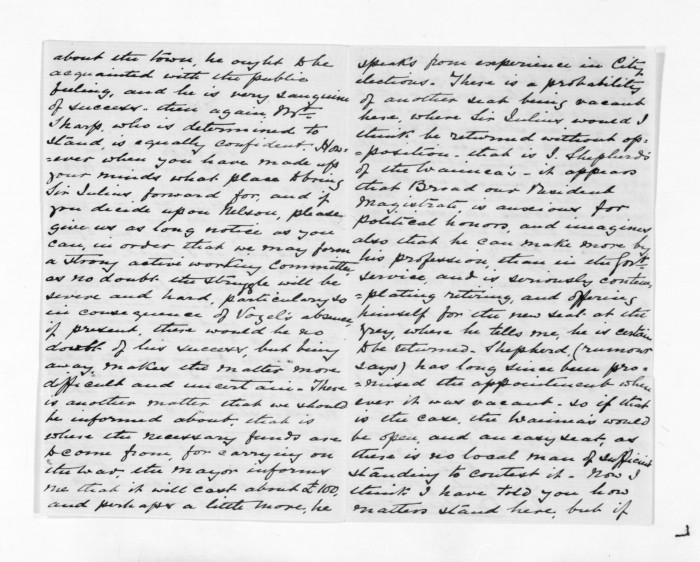 about the town, he ought to be
acquainted with the public
feeling, and he is very sanguine
of success - then again, Mr
Sharp, who is determined to
stand, is equally confident. How-
=ever when you have made up
your minds what place to bring
Sir Julius forward for, and if
you decide upon Nelson, please
give us as long notice as you
can, in order that we may form
a strong active working Committee
as no doubt the struggle will be
severe and hard, particularly so
in consequence of Vogel's absence,
if present, there would be no
doubt of his success, but being
away, makes the matter more
difficult and uncertain - There
is another matter that we should
be informed about, that is
where the necessary funds are
to come from, for carrying on
the war, the mayor informs
me that it will cost about £100,
and perhaps a little more, he
speaks from experience in City
elections - There is a probability
of another seat being vacant
here, where Sir Julius would I
think be returned without op=
=position - that is J. Shepherd's
of the Waimea's - it appears
that Broad our Resident
Magistrate is anxious for
political honors, and imagines
also that he can make more by
his profession, than in the Govt
service, and is seriously contem=
=plating retiring, and offering
himself for the new seat at the
Grey, where he tells me, he is certain
to be returned - Shepherd, (rumour
says) has long since been pro=
=mised the appointment when
ever it was vacant - so if that
is the case, the Waimea's would
be open, and an easy seat, as
there is no local man of sufficient
standing to contest it - Now I
think I have told you how
matters stand here, but if